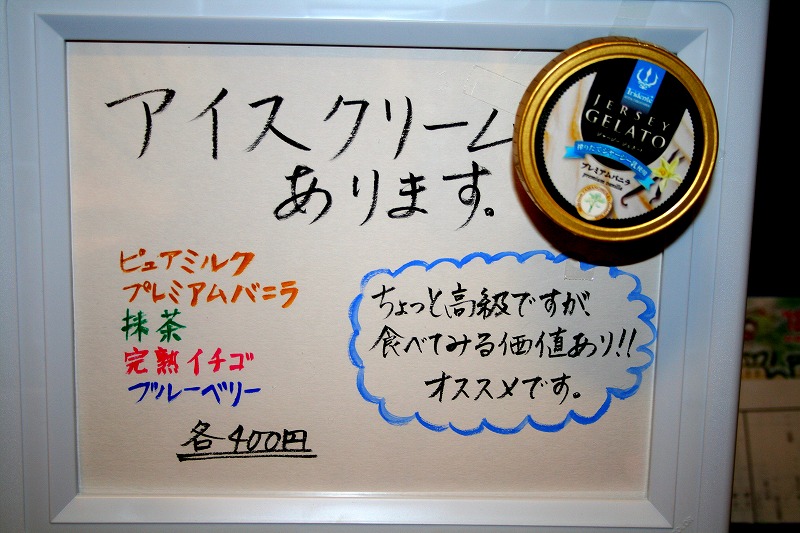 アイスクリーム
あります。
Tridente
JERSEY
GELATO
プレミアムバニラ
premium vanilla
ピュアミルク
プレミアムバニラ
抹茶
完熟イチゴ
ブルーベリー
各400円
ちょっと高級ですが、
食べてみる価値あり!!
オススメです。